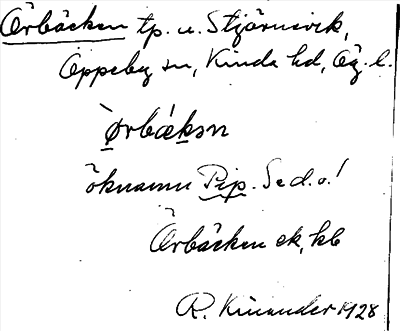 Örbäcken tp. u. Stjärnevik,
Oppeby sn, Kinda hd, Ög. l.
Òrbǽkən
öknamn Pip. Se d. o!
Örbäcken ek, kb
R. Kinander 1928